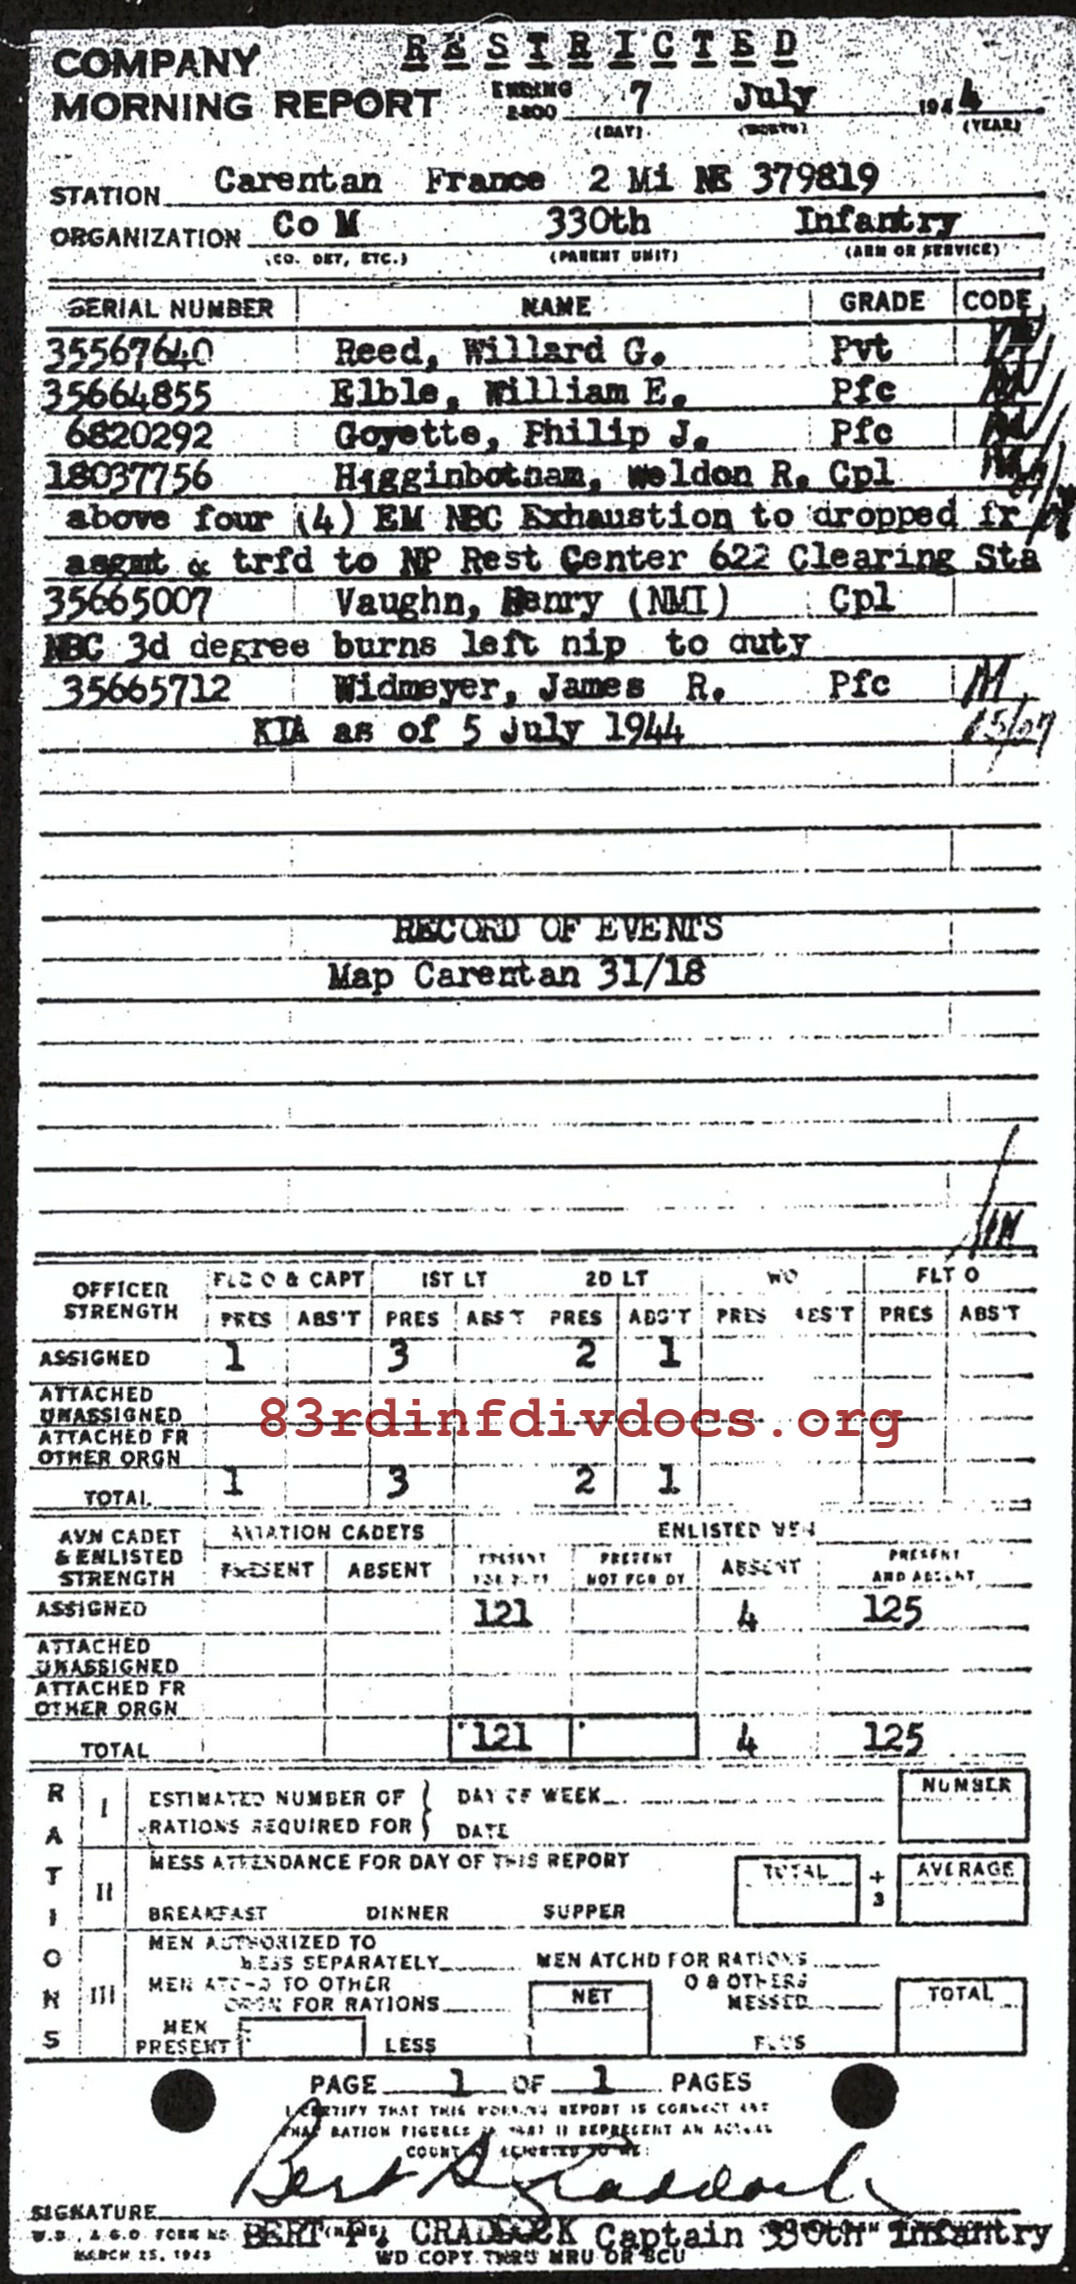 RESTRICTED
COMPANY
MORNING REPORT ENDING 2400 7 July 1944
(DAY) (MONTH) (YEAR)
STATION Carentan France 2 Mi NE 379819
ORGANIZATION Co M 330th Infantry
(CO. DET, ETC.) (PARENT UNIT) (ARM OR SERVICE)
SERIAL NUMBER NAME GRADE CODE
35567640 Reed, Willard G. Pvt
35664855 Elble, William E. Pfc
6820292 Goyette, Philip J. Pfc
18037756 Higginbotham, Weldon R. Cpl
above four (4) EM NBC Exhaustion to dropped fr
asgmt & trfd to NP Rest Center 622 Clearing Sta
35665007 Vaughn, Henry (NMI) Cpl
NBC 3d degree burns left hip to duty
35665712 Widmeyer, James R. Pfc M
KIA as of 5 July 1944
RECORD OF EVENTS
Map Carentan 31/18
OFFICER STRENGTH FLD O & CAPT 1ST LT 2D LT WO FLT O
PRES ABS'T PRES ABS'T PRES ABS'T PRES ABS'T PRES ABS'T
ASSIGNED 1 3 2 1
ATTACHED UNASSIGNED
83rdinfdivdocs.org
ATTACHED FR OTHER ORGN
TOTAL 1 3 2 1
AVN CADET & ENLISTED STRENGTH AVIATION CADETS ENLISTED MEN
PRESENT ABSENT PRESENT FOR DUTY PRESENT NOT FOR DY ABSENT PRESENT AND ABSENT
ASSIGNED 121 4 125
ATTACHED UNASSIGNED
ATTACHED FR OTHER ORGN
TOTAL 121 4 125
RATIONS
I ESTIMATED NUMBER OF RATIONS REQUIRED FOR DAY OF WEEK NUMBER
DATE
II MESS ATTENDANCE FOR DAY OF THIS REPORT TOTAL ÷ 3 AVERAGE
BREAKFAST DINNER SUPPER
III MEN AUTHORIZED TO MESS SEPARATELY MEN ATCHD FOR RATIONS
MEN ATCHD TO OTHER ORGN FOR RATIONS NET O & OTHERS MESSED TOTAL
MEN PRESENT LESS PLUS
PAGE 1 OF 1 PAGES
I CERTIFY THAT THIS MORNING REPORT IS CORRECT AND
THAT RATION FIGURES IN PART II REPRESENT AN ACTUAL
COUNT AS REPORTED TO ME:
SIGNATURE
W.D., A.G.O. FORM NO. BERT P. CRADDOCK Captain 330th Infantry
MARCH 25, 1943 WD COPY THRU MRU OR SCU